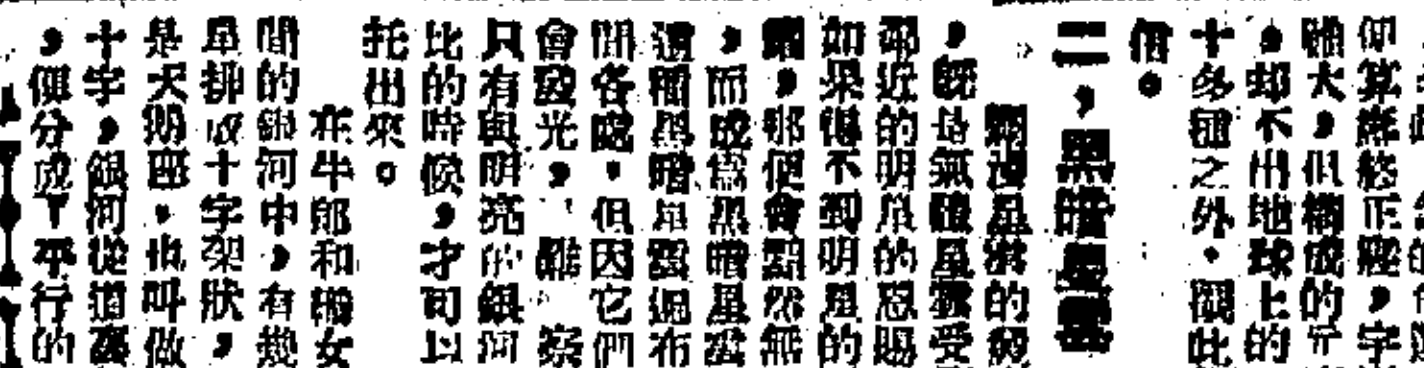 大,但構成的元
,却不出地球上的
十多種之外,關此
信。
二,黑暗星雲
瀰漫星雲的發
,既是氣體星雲受
鄰近的明星的恩賜
如果得不到明星的
,那便會黯然無
,而成爲黑暗星雲
這種黑暗星雲遍布
間各處,但因它們
會發光, 難察
只有與明亮的銀河
比的時候,才可以
托出來。
在牛郎和織女
間的銀河中,有幾
星排成十字架狀,
是天鵝座,也叫做
十字,銀河從這裏
,便分成了平行的